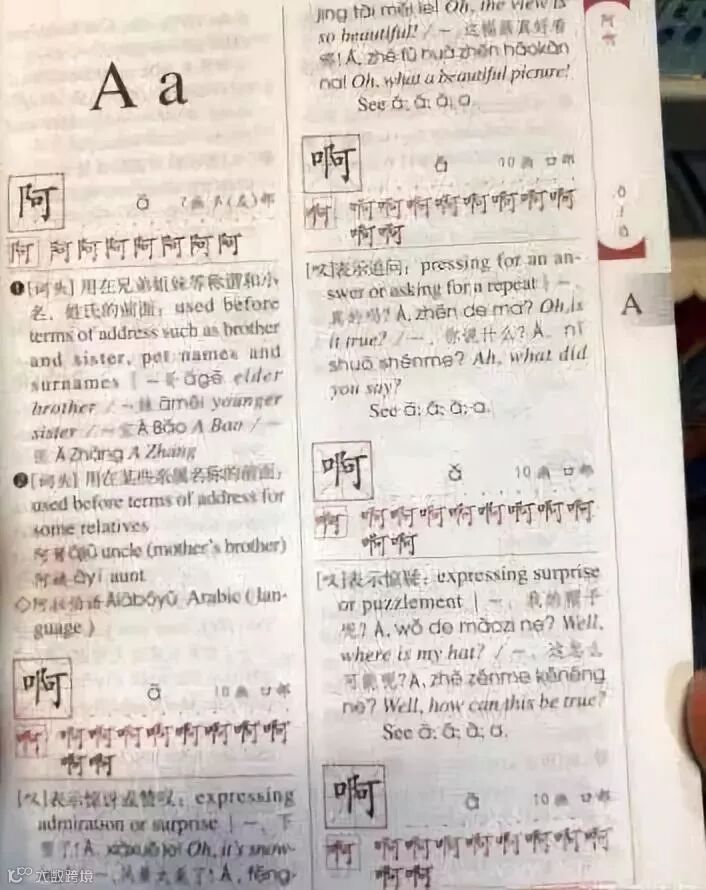 A a
阿 ā 7画 阝(左)部
阿 阿阿阿阿阿阿阿
❶[词头]用在兄弟姐妹等称谓和小
名、姓氏的前面：used before
terms of address such as brother
and sister, pet names and
surnames｜一哥 āgē elder
brother /一妹 āmèi younger
sister /一宝 Ā Bǎo A Bao /一
张 Ā Zhāng A Zhang
❷[词头]用在某些亲属名称的前面：
used before terms of address for
some relatives
uncle (mother's brother)
阿姨 āyí aunt
◇阿拉伯语 Ālābóyǔ Arabic (lan-
guage)
啊 ā 10画 口部
啊 啊啊啊啊啊啊啊啊
啊啊
[叹]表示惊讶或赞叹：expressing
admiration or surprise｜一，下
雪了! Ā, xiàxuě le! Oh, it's snow-
jǐng tài měi le! Oh, the view is
so beautiful! /一，这幅画真好看
Ā, zhè fú huà zhēn hǎokàn
na! Oh, what a beautiful picture!
See á; ǎ; à; a.
啊 á 10画 口部
啊 啊啊啊啊啊啊啊啊
啊啊
[叹]表示追问：pressing for an an-
swer or asking for a repeat｜一，
真的吗? Á, zhēn de ma? Oh, is
it true? /一，你说什么? Á, nǐ
shuō shénme? Ah, what did
you say?
See ā; ǎ; à; a.
啊 ǎ 10画 口部
啊 啊啊啊啊啊啊啊啊
啊啊
[叹]表示惊疑：expressing surprise
or puzzlement｜一，我的帽子
呢? Ǎ, wǒ de màozi ne? Well,
where is my hat? /一，这怎么
可能呢? Ǎ, zhè zěnme kěnéng
ne? Well, how can this be true?
See ā; á; à; a.
啊 à 10画 口部
啊 啊啊啊啊啊啊啊啊
啊啊
阿
啊
A
大数跨境